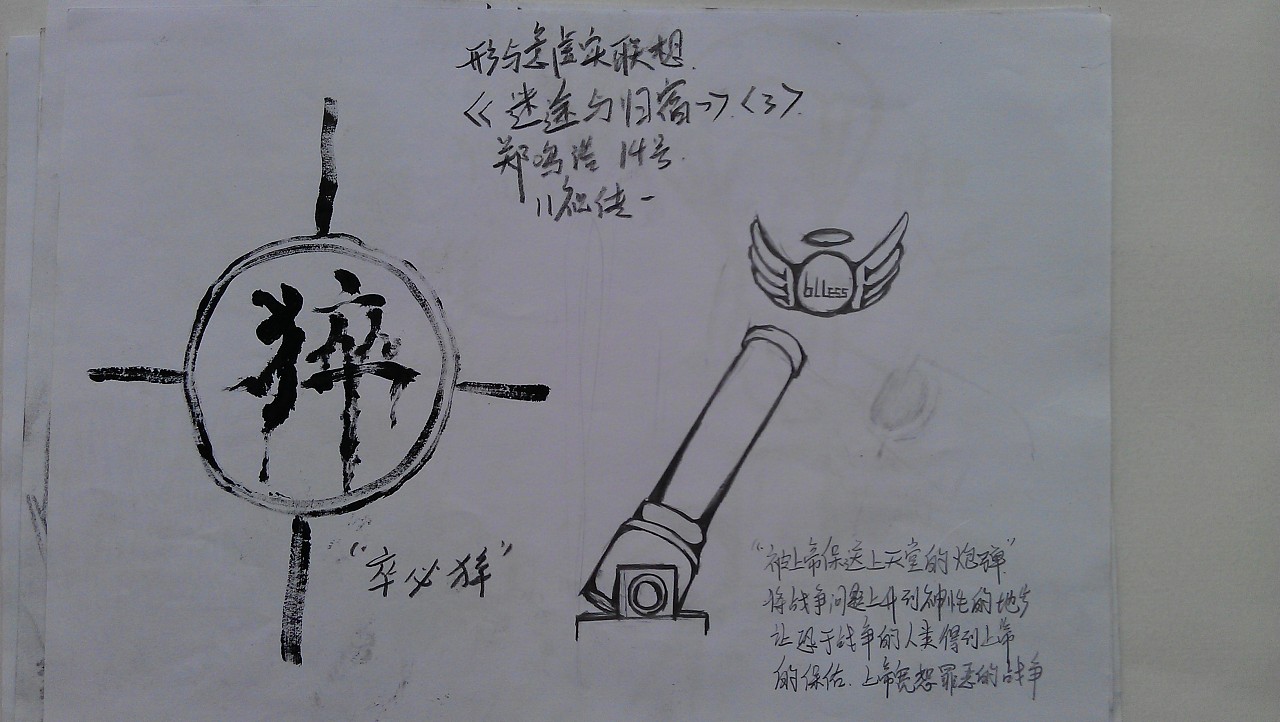 形与意虚实联想
《迷途与归宿》<3>
郑鸣浩 14号
11视传一
猝
blless
"卒必猝"
"被上帝保送上天堂的炮弹"
将战争问题上升到神性的地步
让恐于战争的人类得到上帝
的保佑.上帝宽恕罪恶的战争